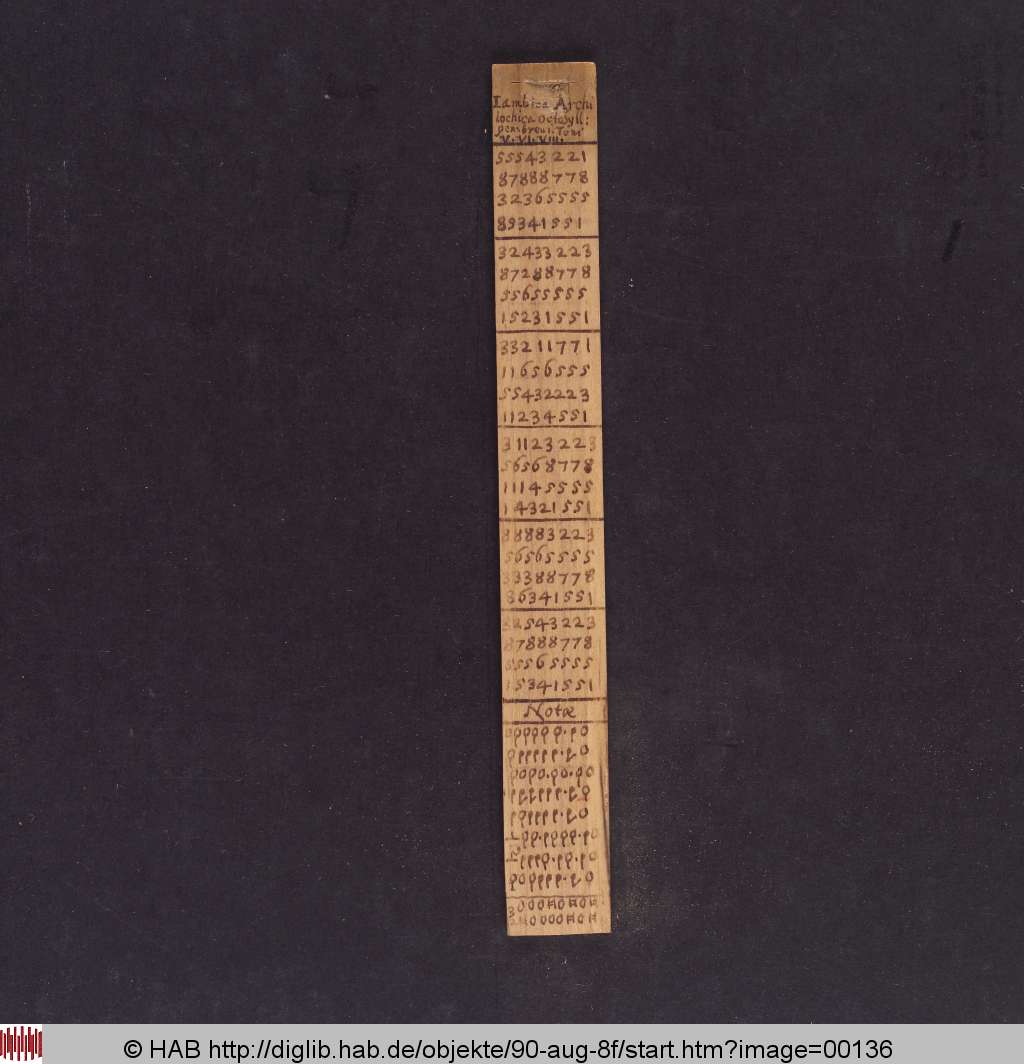 Iambica Archi
lochica octosyll:
penbrevi. Toni
V. VI. VIII.
55543221
87888778
32365555
89341551
32433223
87288778
55655555
15231551
33211771
11656555
55432223
11234551
31123223
56568778
11145555
14321551
88883223
56565555
33388778
86341551
32543223
87888778
55565555
15341551
Notæ
© HAB http://diglib.hab.de/objekte/90-aug-8f/start.htm?image=00136